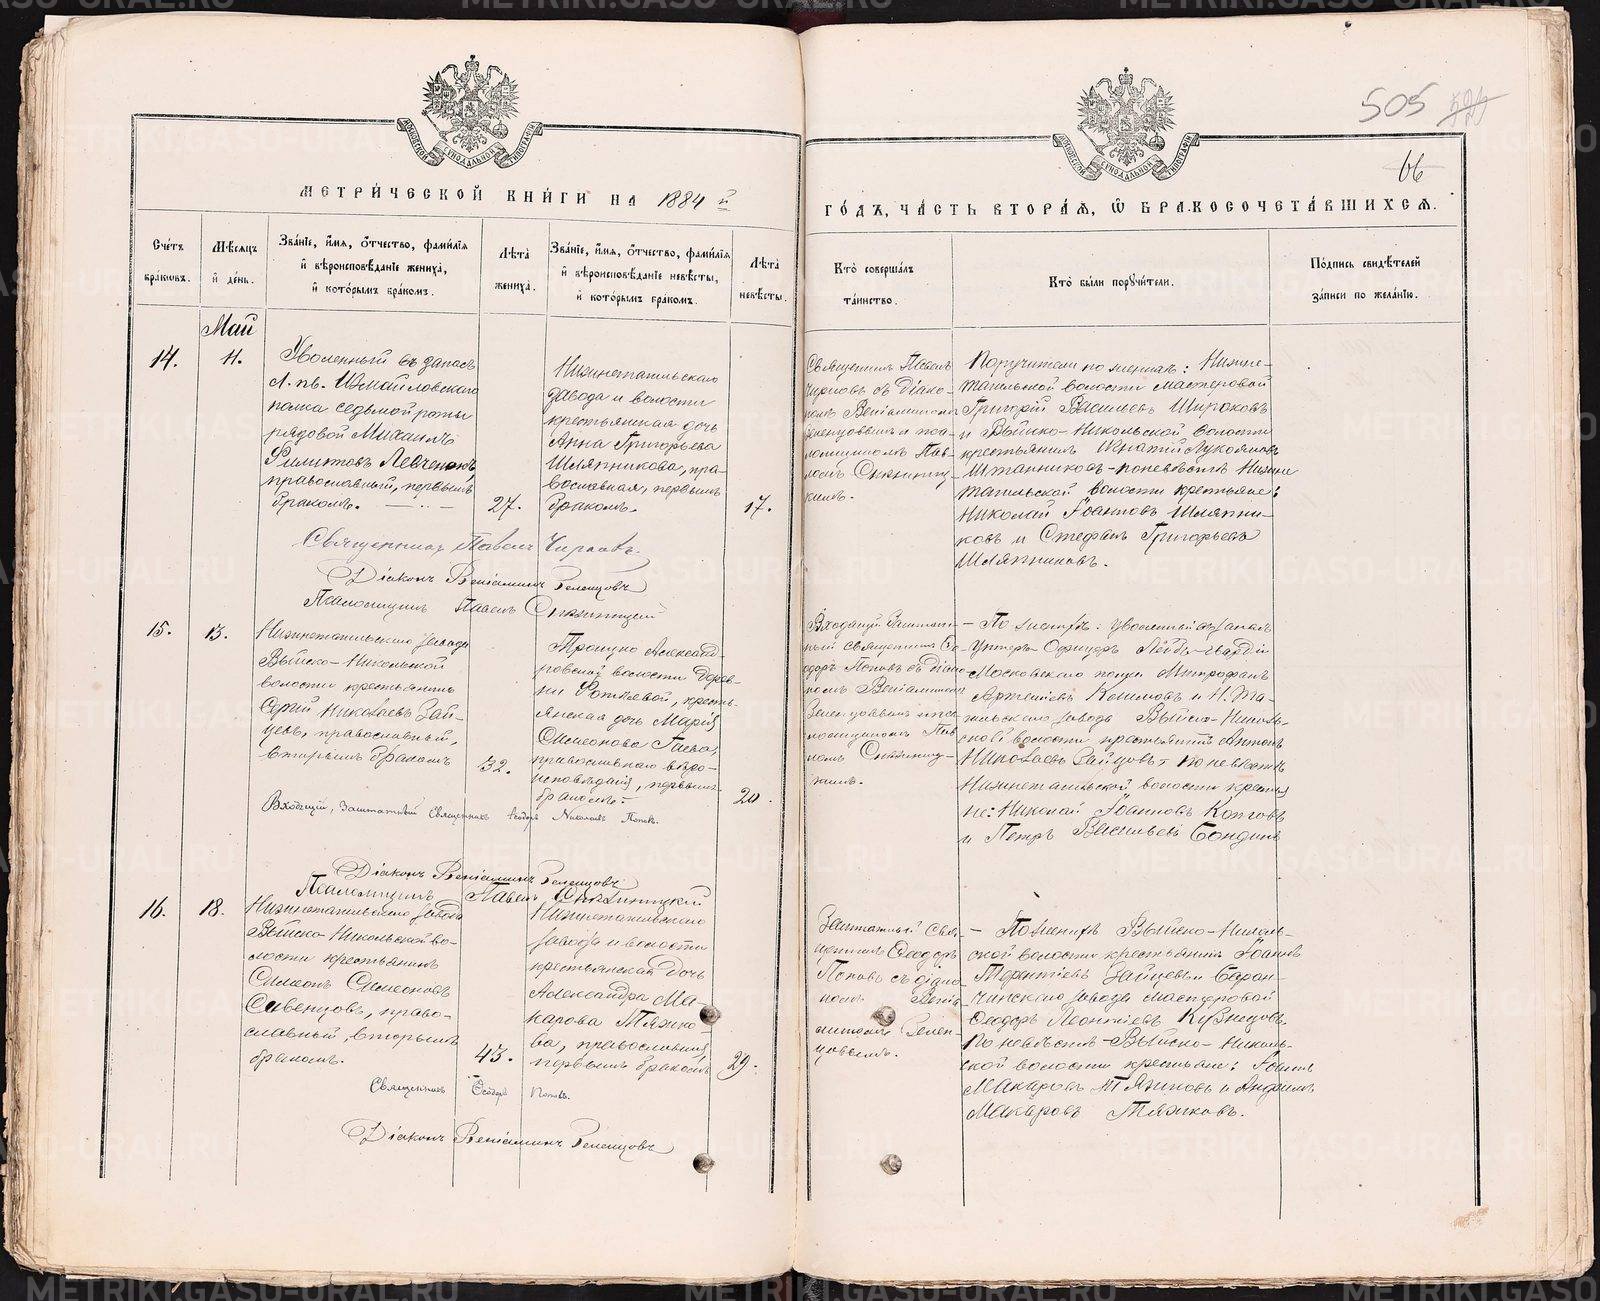 505
66
МОСКОВСКОЙ СѴНОДАЛЬНОЙ ТИПОГРАФІИ
МОСКОВСКОЙ СѴНОДАЛЬНОЙ ТИПОГРАФІИ
МЕТРИ́ЧЕСКОЙ КНИ́ГИ НА 1884 й
ГО́ДЪ, ЧА́СТЬ ВТОРА́Я, Ѿ БРАКОСОЧЕТА́ВШИХСЯ.
Сче́тъ бра́кѡвъ.
Мѣ́сяцъ и́ де́нь.
Зва́нїе, и́мя, ѻ́тчество, фами́лїя
и́ вѣроисповѣ́данїе жениха́,
и́ кото́рымъ бра́комъ.
Лѣ́та жениха́.
Зва́нїе, и́мя, ѻ́тчество, фами́лїя
и́ вѣроисповѣ́данїе невѣ́сты,
и́ кото́рымъ бра́комъ.
Лѣ́та невѣ́сты.
Кто̀ соверша́лъ
та́инство.
Кто̀ бы́ли порꙋчи́тели.
По́дпись свидѣ́телей
за́писи по жела́нїю.
Май
14.
11.
Уволенный въ запасъ
Л.-гв. Измайловскаго
полка седьмой роты
рядовой Михаилъ
Филиповъ Левченко,
православный, первымъ
бракомъ.
27.
Нижнетагильскаго
завода и волости
крестьянская дочь
Анна Григорьева
Шляпникова, пра-
вославная, первымъ
бракомъ.
17.
Священникъ Павелъ
Чирковъ съ діако-
номъ Веніаминомъ
Зеленцовымъ и пса-
ломщикомъ Пав-
ломъ
Поручители по женихѣ: Нижне-
тагильской волости мастеровой
Григорій Васильевъ Широковъ
и Выйско-Никольской волости
крестьянинъ Игнатій Лукояновъ
по невѣстѣ Нижне
тагильской волости крестьяне:
Николай Іоанновъ Шляпни-
ковъ и Стефанъ Григорьевъ
Шляпниковъ.
Священникъ Павелъ Чирковъ.
Діаконъ Веніаминъ Зеленцовъ
Псаломщикъ Павелъ
15.
13.
Нижнетагильскаго завода
Выйско-Никольской
волости крестьянинъ
Сергій Николаевъ Зай-
цевъ, православный,
вторымъ бракомъ
32.
Троицко Александ-
ровской волости дерев-
ни кресть-
янская дочь Марія
Симеонова
православнаго вѣро-
исповѣданія, первымъ
бракомъ.
20.
Входящій Заштат-
ный священникъ Ѳе-
одоръ Поповъ съ діако-
номъ Веніаминомъ
Зеленцовымъ и пса-
ломщикомъ Пав-
ломъ
– По женихѣ: уволенный въ запасъ
Унтеръ-Офицеръ Лейбъ-гвардіи
Московскаго полка Митрофанъ
и Н. Та-
гильскаго завода Выйско-Николь-
ской волости крестьянинъ Антонъ
Николаевъ Зайцовъ; по невѣстѣ
Нижнетагильской волости крестья
не: Николай Іоанновъ
и Петръ Васильевъ Бондинъ
Входящій, Заштатный Священникъ Ѳеодоръ Николаевъ Поповъ.
Діаконъ Веніаминъ Зеленцовъ
Псаломщикъ Павелъ
16.
18.
Нижнетагильскаго завода
Выйско-Никольской во-
лости крестьянинъ
Симеонъ Симеоновъ
Савенцовъ, право-
славный, вторымъ
бракомъ.
43.
Нижнетагильскаго
завода и волости
крестьянская дочь
Александра Ма-
карова Тяжко-
ва, православная,
первымъ бракомъ
29.
Заштатный Свя-
щенникъ Ѳеодоръ
Поповъ съ діако-
номъ Веніа-
миномъ Зелен-
цовымъ.
– По женихѣ Выйско-Николь-
ской волости крестьянинъ Іоаннъ
Терентіевъ Зайцевъ и Баран-
чинскаго завода мастеровой
Ѳеодоръ Леонтіевъ Кузнецовъ.
По невѣстѣ – Выйско-Николь-
ской волости крестьяне: Іоаннъ
Макаровъ Тяжковъ и
Макаровъ Тяжковъ.
Священникъ Ѳеодоръ Поповъ.
Діаконъ Веніаминъ Зеленцовъ
METRIKI.GASO-URAL.RU